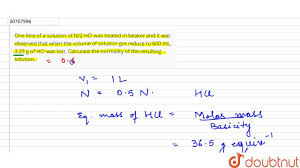 30707996
One litre of a solution of N/2 HCl was heated in beaker and it was
observed that when the volume of solution got reduce to 600 mL
3.25 g of HCl was lost. Calculate the normality of the resulting
solution.
= 0.6
V₁ = 1L
N = 0.5 N. HCl
Eq. mass of HCl = Molar mass
Basicity
= 36.5 g equiv⁻¹
doubtnut